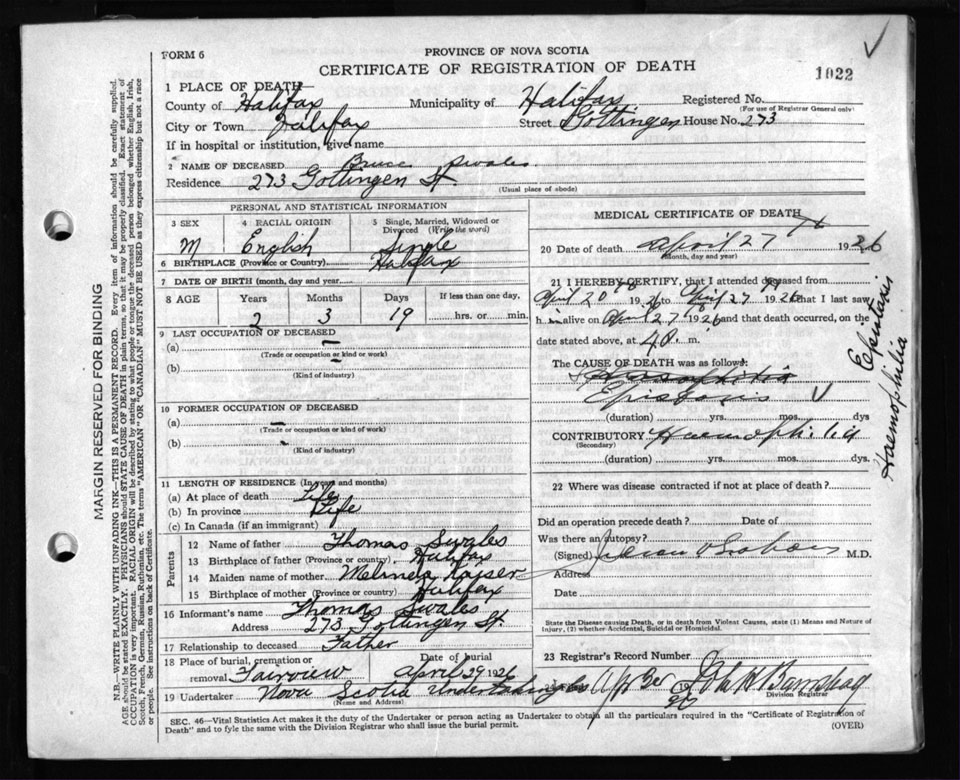 FORM 6
PROVINCE OF NOVA SCOTIA
CERTIFICATE OF REGISTRATION OF DEATH
1022
1 PLACE OF DEATH
County of Halifax Municipality of Halifax Registered No.
(For use of Registrar General only)
City or Town Halifax Street Gottingen House No. 273
If in hospital or institution, give name
2 NAME OF DECEASED Bruce Swales.
Residence 273 Gottingen St.
(Usual place of abode)
PERSONAL AND STATISTICAL INFORMATION
3 SEX 4 RACIAL ORIGIN 5 Single, Married, Widowed or Divorced (Write the word)
M English Single
6 BIRTHPLACE (Province or Country) Halifax
7 DATE OF BIRTH (month, day and year)
8 AGE Years Months Days If less than one day,
2 3 19 hrs. or min.
9 LAST OCCUPATION OF DECEASED
(a) —
(Trade or occupation or kind or work)
(b) —
(Kind of industry)
10 FORMER OCCUPATION OF DECEASED
(a) —
(Trade or occupation or kind or work)
(b) -
(Kind of industry)
11 LENGTH OF RESIDENCE (In years and months)
(a) At place of death Life
(b) In province Life
(c) In Canada (if an immigrant)
Parents
12 Name of father Thomas Swales
13 Birthplace of father (Province or country) Halifax
14 Maiden name of mother Melinda Kaiser
15 Birthplace of mother (Province or country) Halifax
16 Informant's name Thomas Swales
Address 273 Gottingen St.
17 Relationship to deceased Father
18 Place of burial, cremation or removal Fairview Date of burial April 29 1926
19 Undertaker Nova Scotia Undertaking Co
(Name and Address)
MEDICAL CERTIFICATE OF DEATH
20 Date of death April 27 th 1926
(Month, day and year)
21 I HEREBY CERTIFY, that I attended deceased from
April 20 th 1926 to April 27 th 1926 that I last saw
h im alive on April 27 th 1926 and that death occurred, on the
date stated above, at 4 a. m.
The CAUSE OF DEATH was as follows:
Epistaxis
(duration) yrs. mos. dys
CONTRIBUTORY Haemophilia
(Secondary)
(duration) yrs. mos. dys.
22 Where was disease contracted if not at place of death?
Did an operation precede death? Date of
Was there an autopsy?
(Signed) M.D.
Address
Date
State the Disease causing Death, or in death from Violent Causes, state (1) Means and Nature of Injury, (2) whether Accidental, Suicidal or Homicidal.
23 Registrar's Record Number
Division Registrar
Epistaxis
Haemophilia
SEC. 46—Vital Statistics Act makes it the duty of the Undertaker or person acting as Undertaker to obtain all the particulars required in the "Certificate of Registration of
Death" and to fyle the same with the Division Registrar who shall issue the burial permit.
(OVER)
MARGIN RESERVED FOR BINDING
N.B.—WRITE PLAINLY WITH UNFADING INK—THIS IS A PERMANENT RECORD. Every item of information should be carefully supplied.
AGE should be stated EXACTLY. PHYSICIANS should STATE CAUSE OF DEATH in plain terms, so that it may be properly classified. Exact statement of
OCCUPATION is very important. RACIAL ORIGIN will be described by stating to what people or tongue the deceased person belonged whether English, Irish,
Scotch, French, German, Russian, Ruthenian, etc. The terms "AMERICAN" or "CANADIAN" MUST NOT BE USED as they express citizenship but not a race
or people. See instructions on back of Certificate.